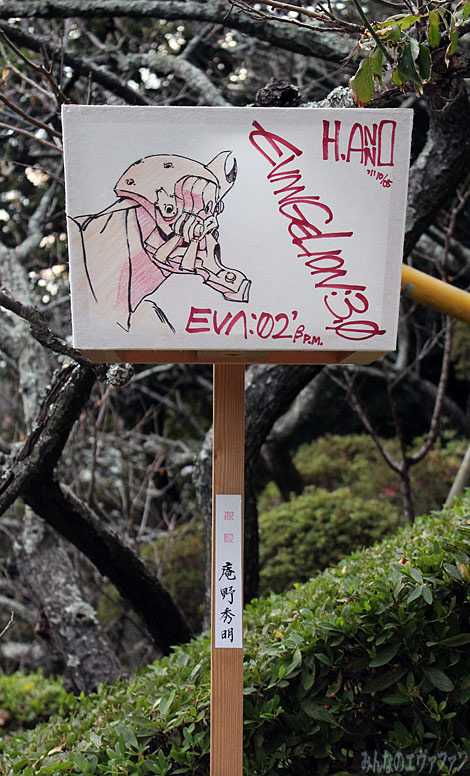 H.ANNO
'11 10/05
EVANGELION:3.0
EVA:02'
β P.M.
庵野秀明
みんなのエヴァファン